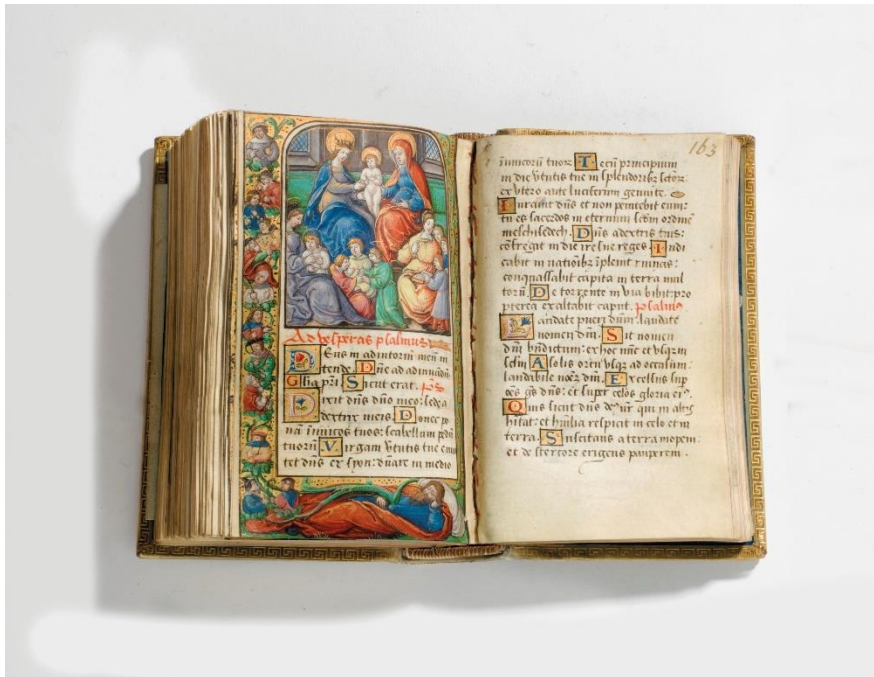 Ad vesperas psalmus
Deus in adiutoriũ meũ in
tende. Dñe ad adiuuadũ
Glia pri. Sicut erat. ps
Dixit dñs dño meo: sede a
dextris meis. Donec po
nã inimicos tuos: scabellum pedũ
tuorũ Virgam vtutis tue emi
tet dñs ex syon: dñare in medio
163
inimicorũ tuor. Tecũ principium
in die vtutis tue in splendoribz scõrz
ex vtero ante luciferum genui te.
Iurauit dñs et non penitebit eum:
tu es sacerdos in eternum scdm ordinẽ
melchisedech. Dñs a dextris tuis:
cõfregit in die ire sue reges. Iudi
cabit in natiõibz ĩplebit ruinas:
conquassabit capita in terra mul
torũ. De torrente in via bibit: pro
pterea exaltabit caput. psalmus
Laudate pueri dñum: laudate
nomen dñi. Sit nomen
dñi bñdictum: ex hoc nũc et vsqz in
sclm A solis ortu vsqz ad occasum:
laudabile nomẽ dñi. Excelsus sup
oẽs gẽtes dñs: et super celos gloria eis.
Quis sicut dñs deus nr qui in altis
hitat: et humilia respicit in celo et in
terra. Suscitans a terra inopem:
et de stercore erigens pauperem.